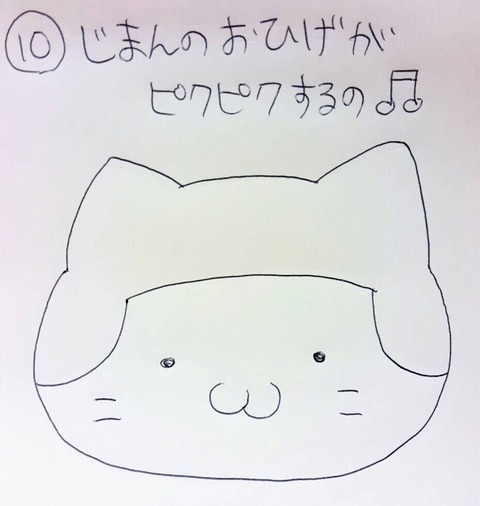 ⑩じまんのおひげが
ピクピクするの♫